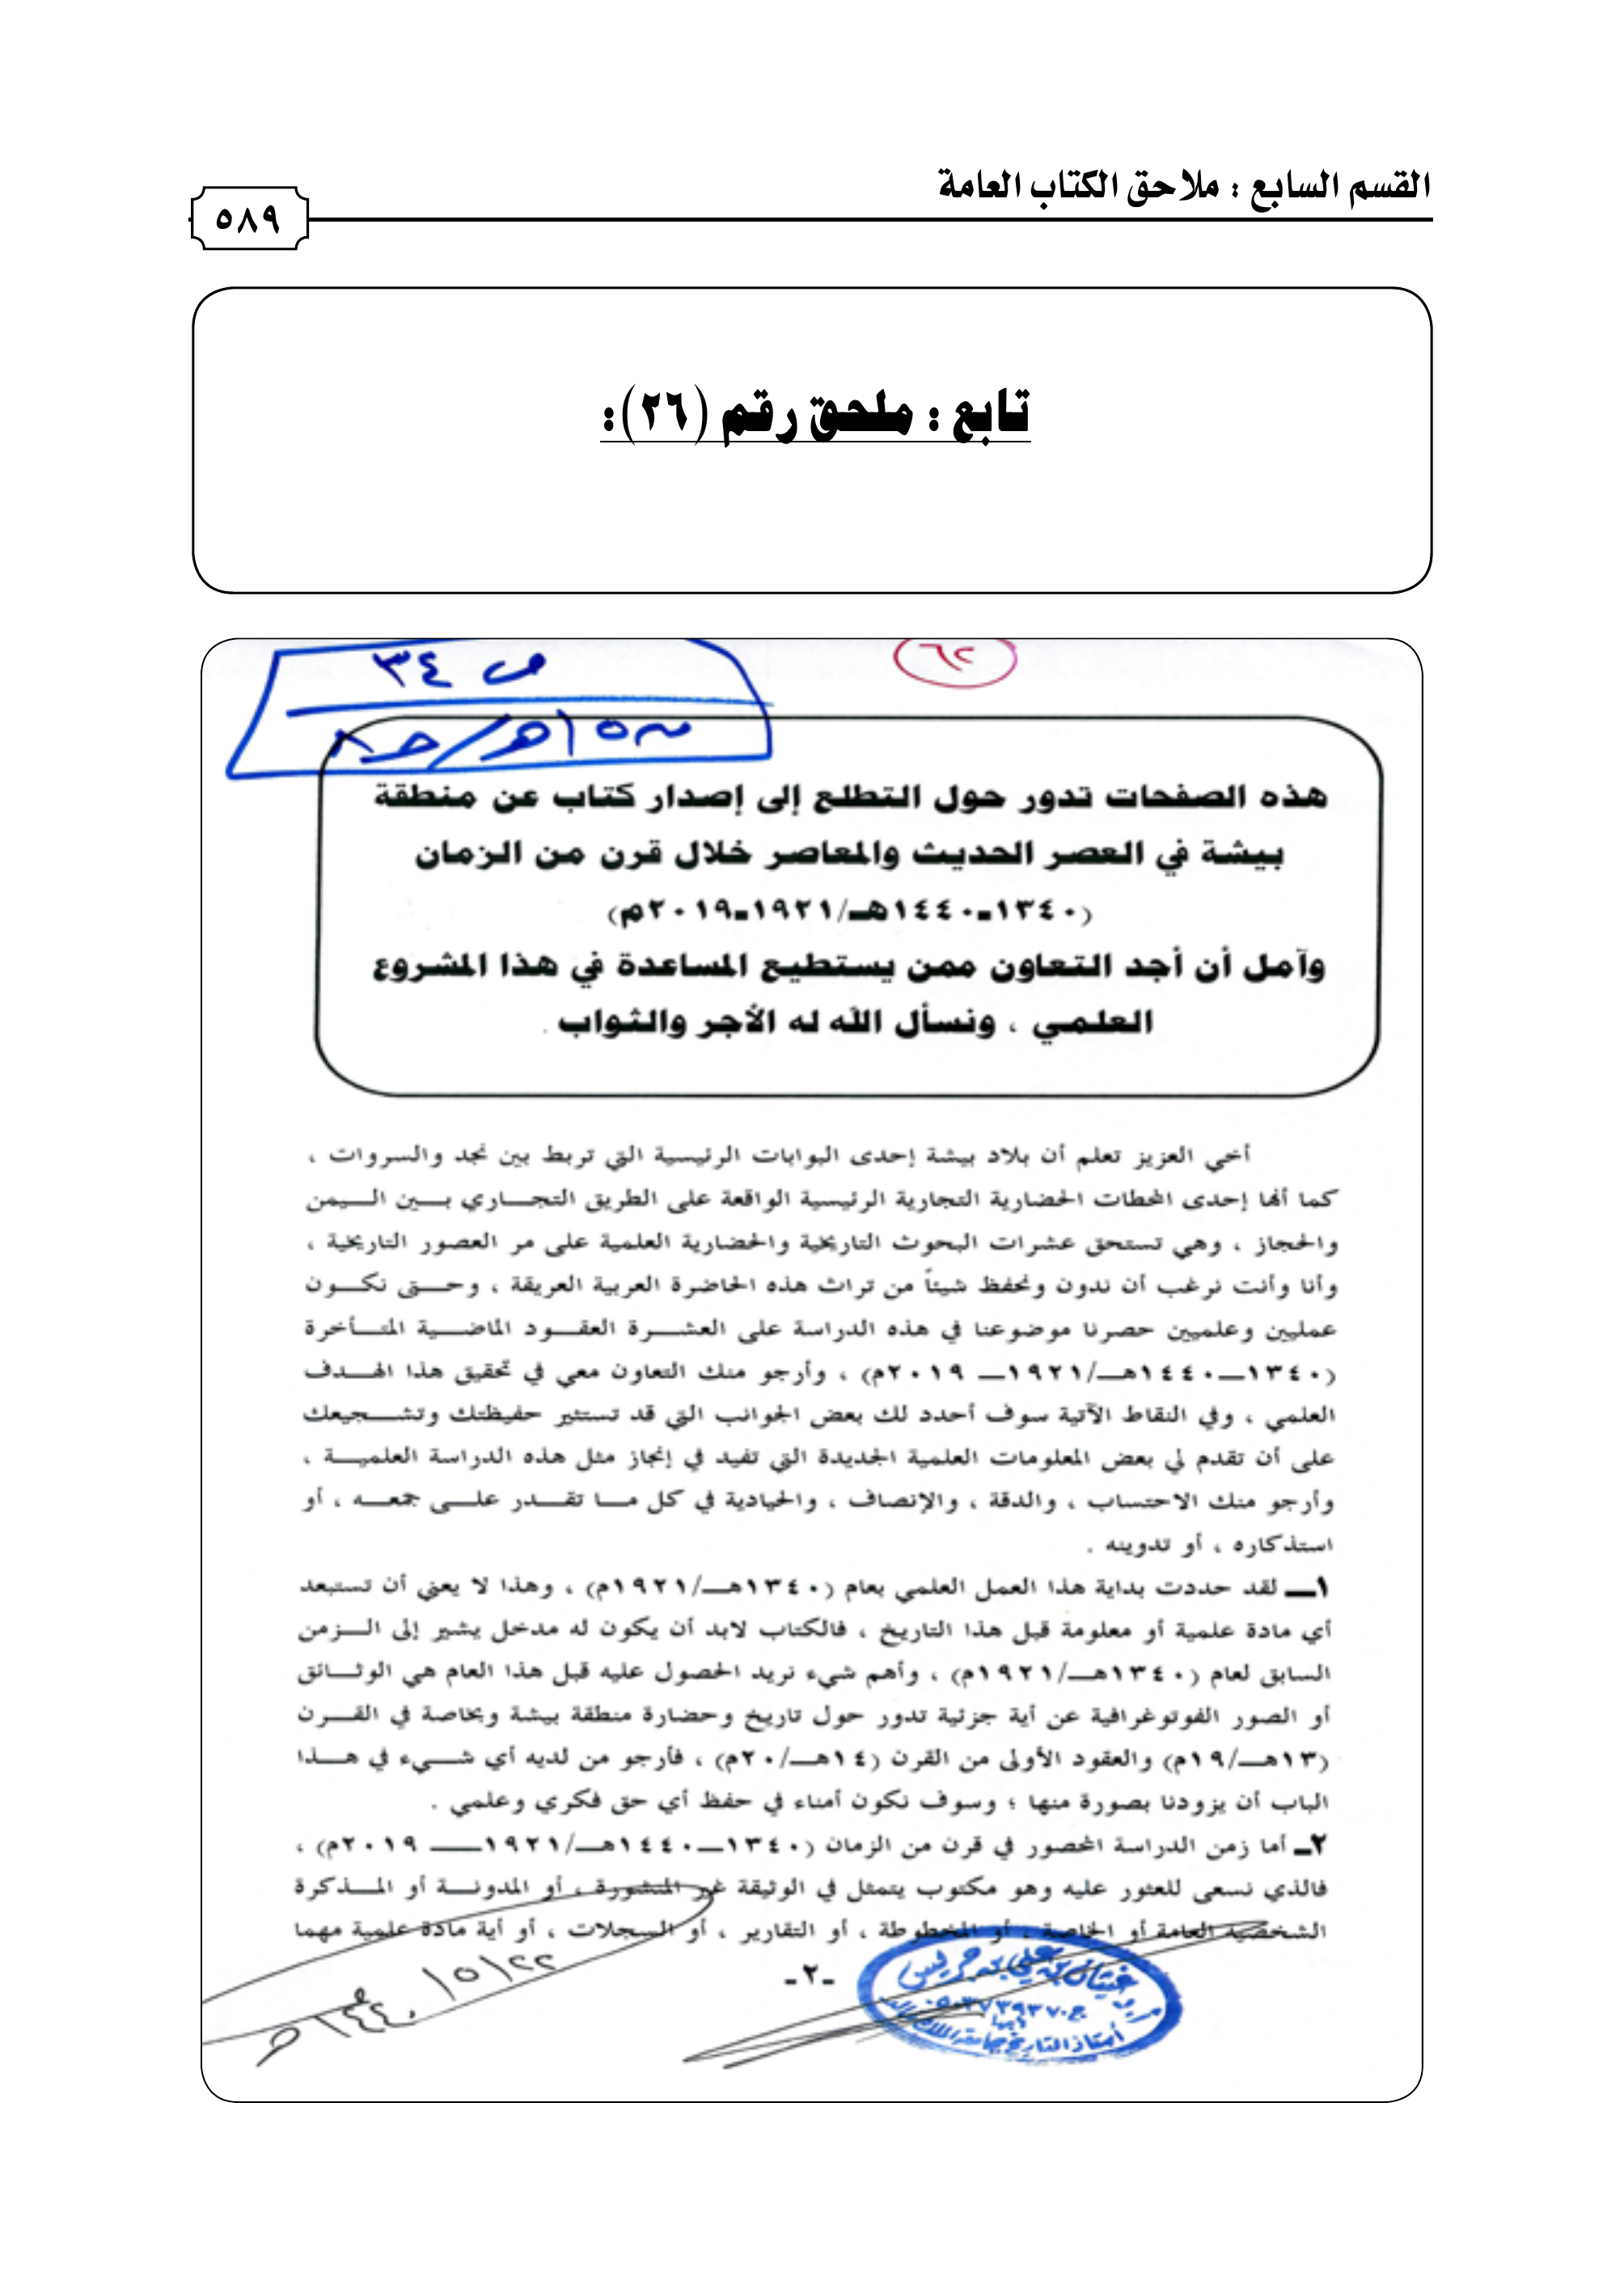 القسم السابع : ملاحق الكتاب العامة
٥٨٩
تابع : ملحق رقم (٢٦):
٦٢
ص ٣٤
هذه الصفحات تدور حول التطلع إلى إصدار كتاب عن منطقة
بيشة في العصر الحديث والمعاصر خلال قرن من الزمان
(١٣٤٠ـ١٤٤٠هـ/١٩٢١ـ٢٠١٩م)
وآمل أن أجد التعاون ممن يستطيع المساعدة في هذا المشروع
العلمي ، ونسأل الله له الأجر والثواب .
أخي العزيز تعلم أن بلاد بيشة إحدى البوابات الرئيسية التي تربط بين نجد والسروات ،
كما أنها إحدى المحطات الحضارية التجارية الرئيسية الواقعة على الطريق التجـــاري بـــين الـــيمن
والحجاز ، وهي تستحق عشرات البحوث التاريخية والحضارية العلمية على مر العصور التاريخية ،
وأنا وأنت نرغب أن ندون ونحفظ شيئاً من تراث هذه الحاضرة العربية العريقة ، وحـــتى نكـــون
عمليين وعلميين حصرنا موضوعنا في هذه الدراسة على العشـــرة العقـــود الماضـــية المتـــأخرة
(١٣٤٠ــ١٤٤٠هــ/١٩٢١ــ ٢٠١٩م) ، وأرجو منك التعاون معي في تحقيق هذا الهـــدف
العلمي ، وفي النقاط الآتية سوف أحدد لك بعض الجوانب التي قد تستثير حفيظتك وتشـــجيعك
على أن تقدم لي بعض المعلومات العلمية الجديدة التي تفيد في إنجاز مثل هذه الدراسة العلميـــة ،
وأرجو منك الاحتساب ، والدقة ، والإنصاف ، والحيادية في كل مـــا تقـــدر علـــى جمعـــه ، أو
استذكاره ، أو تدوينه .
١ــ لقد حددت بداية هذا العمل العلمي بعام (١٣٤٠هــ/١٩٢١م) ، وهذا لا يعني أن تستبعد
أي مادة علمية أو معلومة قبل هذا التاريخ ، فالكتاب لابد أن يكون له مدخل يشير إلى الـــزمن
السابق لعام (١٣٤٠هــ/١٩٢١م) ، وأهم شيء نريد الحصول عليه قبل هذا العام هي الوثـــائق
أو الصور الفوتوغرافية عن أية جزئية تدور حول تاريخ وحضارة منطقة بيشة وبخاصة في القـــرن
(١٣هــ/١٩م) والعقود الأولى من القرن (١٤هــ/٢٠م) ، فأرجو من لديه أي شـــيء في هـــذا
الباب أن يزودنا بصورة منها ؛ وسوف نكون أمناء في حفظ أي حق فكري وعلمي .
٢ــ أما زمن الدراسة المحصور في قرن من الزمان (١٣٤٠ــ١٤٤٠هــ/١٩٢١ــــ ٢٠١٩م) ،
فالذي نسعى للعثور عليه وهو مكتوب يتمثل في الوثيقة غير المنشورة ، أو المدونـــة أو المـــذكرة
الشخصية العامة أو الخاصة ، أو المخطوطة ، أو التقارير ، أو السجلات ، أو أية مادة علمية مهما
-٢-
غيثان بن علي بن جريس
أستاذ التاريخ بجامعة الملك خالد
٢٢/٥/١٤٤٠هـ